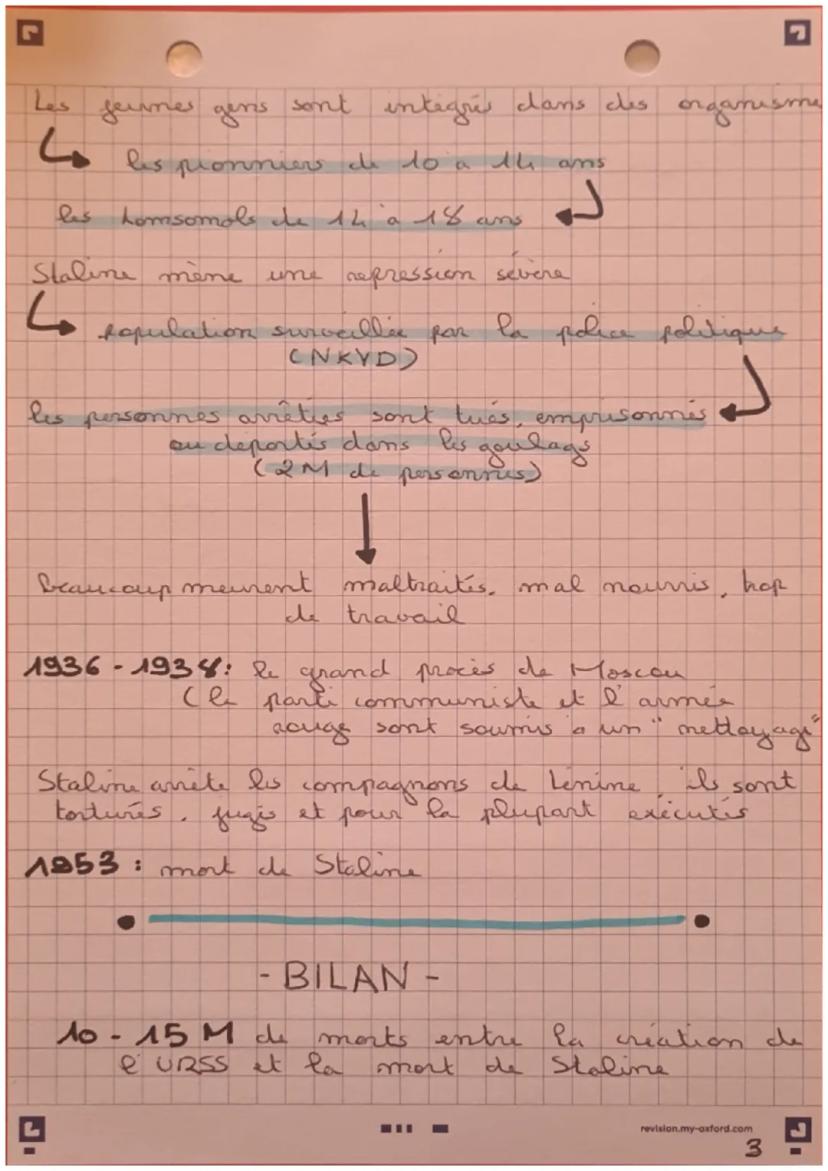 Les jeunes gens sont intégrés dans des organisme
les pionniers de 10 a 14 ans
les komsomols de 14 a 18 ans
Staline mène une repression sévère
population surveillée par la police politique
(NKVD)
les personnes arrêties sont tués, emprisonnés
ou deportés dans les goulags
(2M de personnes)
beaucoup meurent maltraités, mal nourris, trop
de travail
1936-1938: le grand procès de Moscou
(le parti communiste et l'armée
rouge sont soumis a un "nettoyage"
Staline arrête les compagnons de Lénine, ils sont
torturés, jugés et pour la plupart exécutés
1953: mort de Staline
- BILAN -
10-15M de morts entre la création de
l'URSS et la mort de Staline
revision.my-oxford.com
3